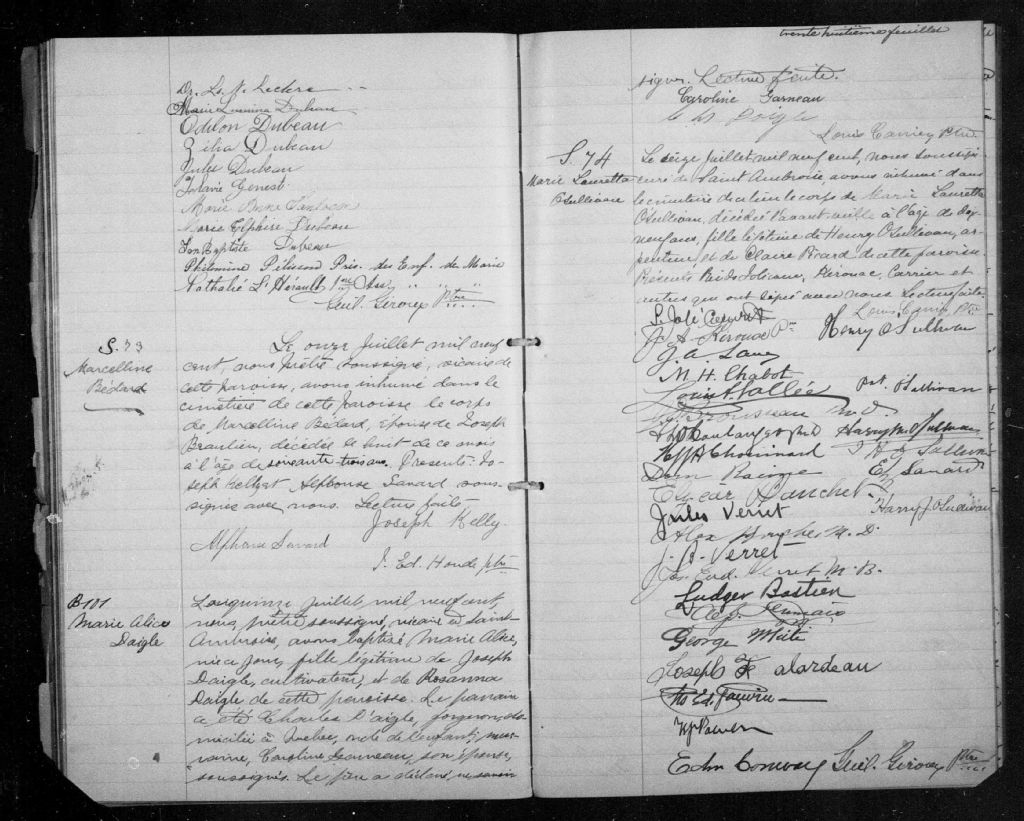 Dr. Ls. N. Leclerc
Marie Dubeau
Odilon Dubeau
Zélia Dubeau
Jules Dubeau
Octavie Genest
Marie Anne
Marie Delphine Dubeau
Jean Baptiste Dubeau
Philomène Pélisson Prés. des Enf. de Marie
Nathalie L'Hérault 1ère Ass. " " "
Guil. Giroux Ptre
S. 73
Marcelline
Bédard
Le onze juillet mil neuf
cent, nous prêtre soussigné, vicaire de
cette paroisse, avons inhumé dans le
cimetière de cette paroisse le corps
de Marcelline Bédard, épouse de Joseph
Beaulieu, décédée le huit de ce mois
à l'âge de soixante trois ans. Présents: Jo-
seph Kelly et Alphonse Savard sous-
signés avec nous. Lecture faite
Joseph Kelly
Alphonse Savard
J. Ed. Houde ptre
B 101
Marie Alice
Daigle
Le quinze juillet, mil neuf cent,
nous, prêtre soussigné, vicaire de Saint
Ambroise, avons baptisé Marie Alice,
née ce jour, fille légitime de Joseph
Daigle, cultivateur, et de Rosanna
Daigle de cette paroisse. Le parrain
a été Charles Daigle, forgeron, do-
micilié à Québec, oncle de l'enfant, mar-
raine, Caroline Garneau, son épouse,
soussignés. Le père a déclaré ne savoir
trente huitième feuillet
signer. Lecture faite.
Caroline Garneau
Ch Daigle
Louis Carrier Ptre
S. 74
Marie Lauretta
O'Sullivan
Le seize juillet mil neuf cent, nous soussigné
curé de Saint Ambroise, avons inhumé dans
le cimetière du lieu le corps de Marie Lauretta
O'Sullivan, décédée l'avant-veille à l'âge de dix
neuf ans, fille légitime de Henry O'Sullivan, ar-
penteur, et de Claire Picard de cette paroisse.
Présents Kerouac, Carrier et
autres qui ont signé avec nous. Lecture faite.
Louis Carrier Ptre
Henry O'Sullivan
J. A. Kerouac Ptre
J. A. Lane
M. H. Chabot
Louis A. Vallée
Pat. O'Sullivan
Rousseau M.D.
H A Chouinard
Dom Racine
Ed Savard
Edgar Panchet
Jules Verret
Harry J. O'Sullivan
M.D
J. B. Verret
Jos. Eud. Verret M.B.
Ludger Bastien
George White
Joseph F. Falardeau
Edm Conway
Guil. Giroux Ptre